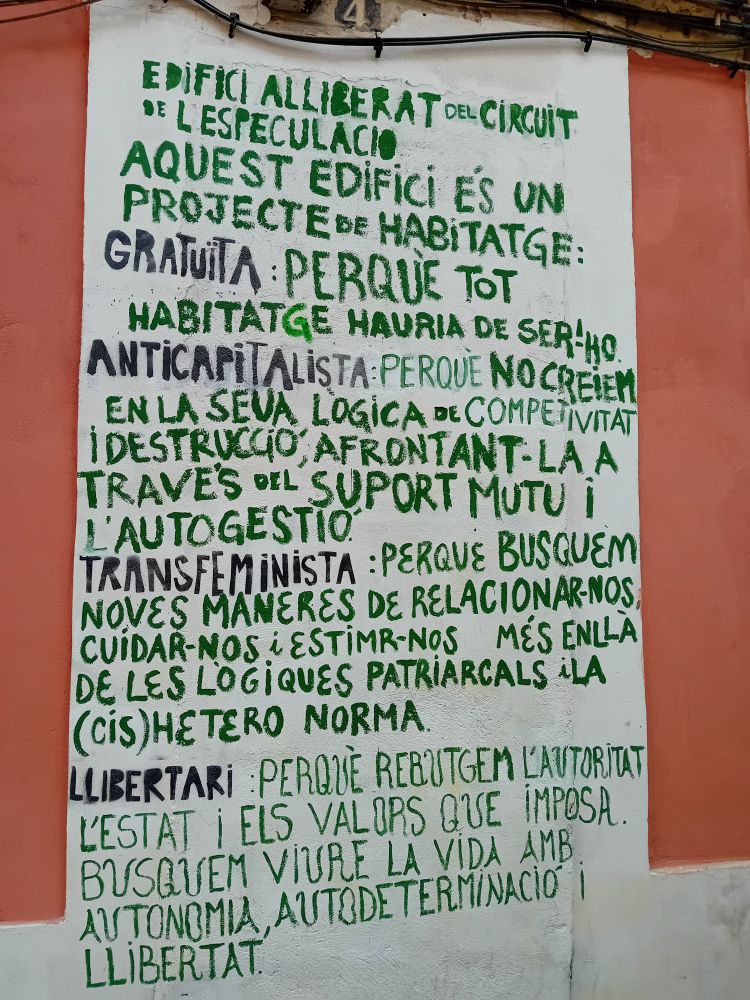 4
EDIFICI ALLIBERAT DEL CIRCUIT
DE L'ESPECULACIÓ
AQUEST EDIFICI ÉS UN
PROJECTE DE HABITATGE:
GRATUÏTA: PERQUÈ TOT
HABITATGE HAURIA DE SER-HO.
ANTICAPITALISTA: PERQUÈ NO CREIEM
EN LA SEVA LÒGICA DE COMPETIVITAT
I DESTRUCCIÓ, AFRONTANT-LA A
TRAVÉS DEL SUPORT MUTU I
L'AUTOGESTIÓ.
TRANSFEMINISTA: PERQUE BUSQUEM
NOVES MANERES DE RELACIONAR-NOS,
CUIDAR-NOS I ESTIMR-NOS MÉS ENLLÀ
DE LES LÒGIQUES PATRIARCALS I LA
(CIS)HETERO NORMA.
LLIBERTARI: PERQUÈ REBUTGEM L'AUTORITAT
L'ESTAT I ELS VALORS QUE IMPOSA.
BUSQUEM VIURE LA VIDA AMB
AUTONOMIA, AUTODETERMINACIÓ I
LLIBERTAT.